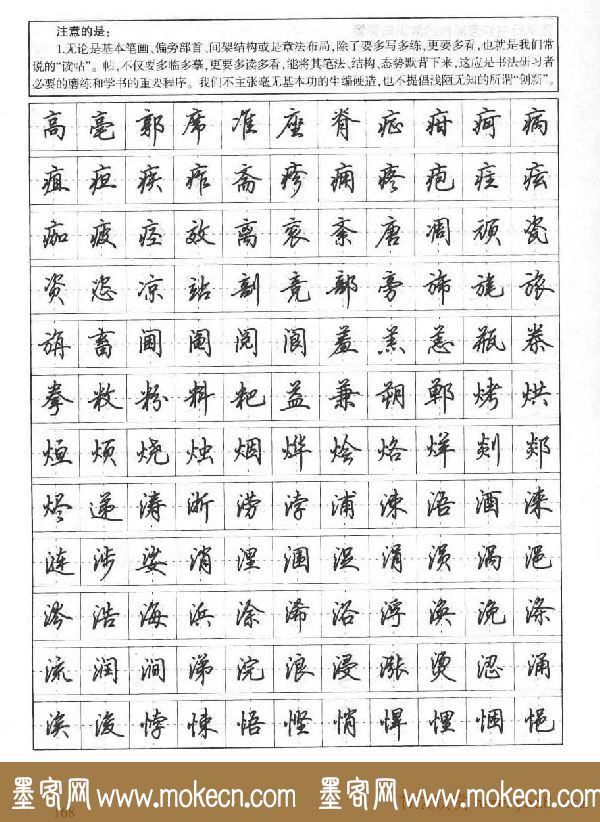 注意的是：
1.无论是基本笔画、偏旁部首、间架结构或是章法布局，除了要多写多练，更要多看，也就是我们常
说的“读帖”。帖，不仅要多临多摹，更要多读多看，能将其笔法、结构、态势默背下来，这应是书法研习者
必要的磨练和学书的重要程序。我们不主张毫无基本功的生编硬造，也不提倡浅陋无知的所谓“创新”。
高 亳 郭 席 准 座 脊 症 疳 疴 病
疽 疸 疾 痄 斋 疹 痈 疼 疱 疰 痃
痂 疲 痉 效 离 衮 紊 唐 凋 颃 瓷
资 恣 凉 站 剖 竞 部 旁 旆 旄 旅
旃 畜 阃 阄 阅 阆 羞 羔 恙 瓶 桊
拳 敉 粉 料 粑 益 兼 朔 郸 烤 烘
烜 烦 烧 烛 烟 烨 烩 烙 烊 剡 郯
烬 递 涛 浙 涝 浡 浦 涑 浯 酒 涞
涟 涉 娑 消 涅 涠 浞 涓 涢 涡 浥
涔 浩 海 浜 涂 浠 浴 浮 涣 浼 涤
流 润 涧 涕 浣 浪 浸 涨 烫 涩 涌
涘 浚 悖 悚 悟 悭 悄 悍 悝 悃 悒
墨客网 www.mokecn.com 墨客网 www.mokecn.com
168